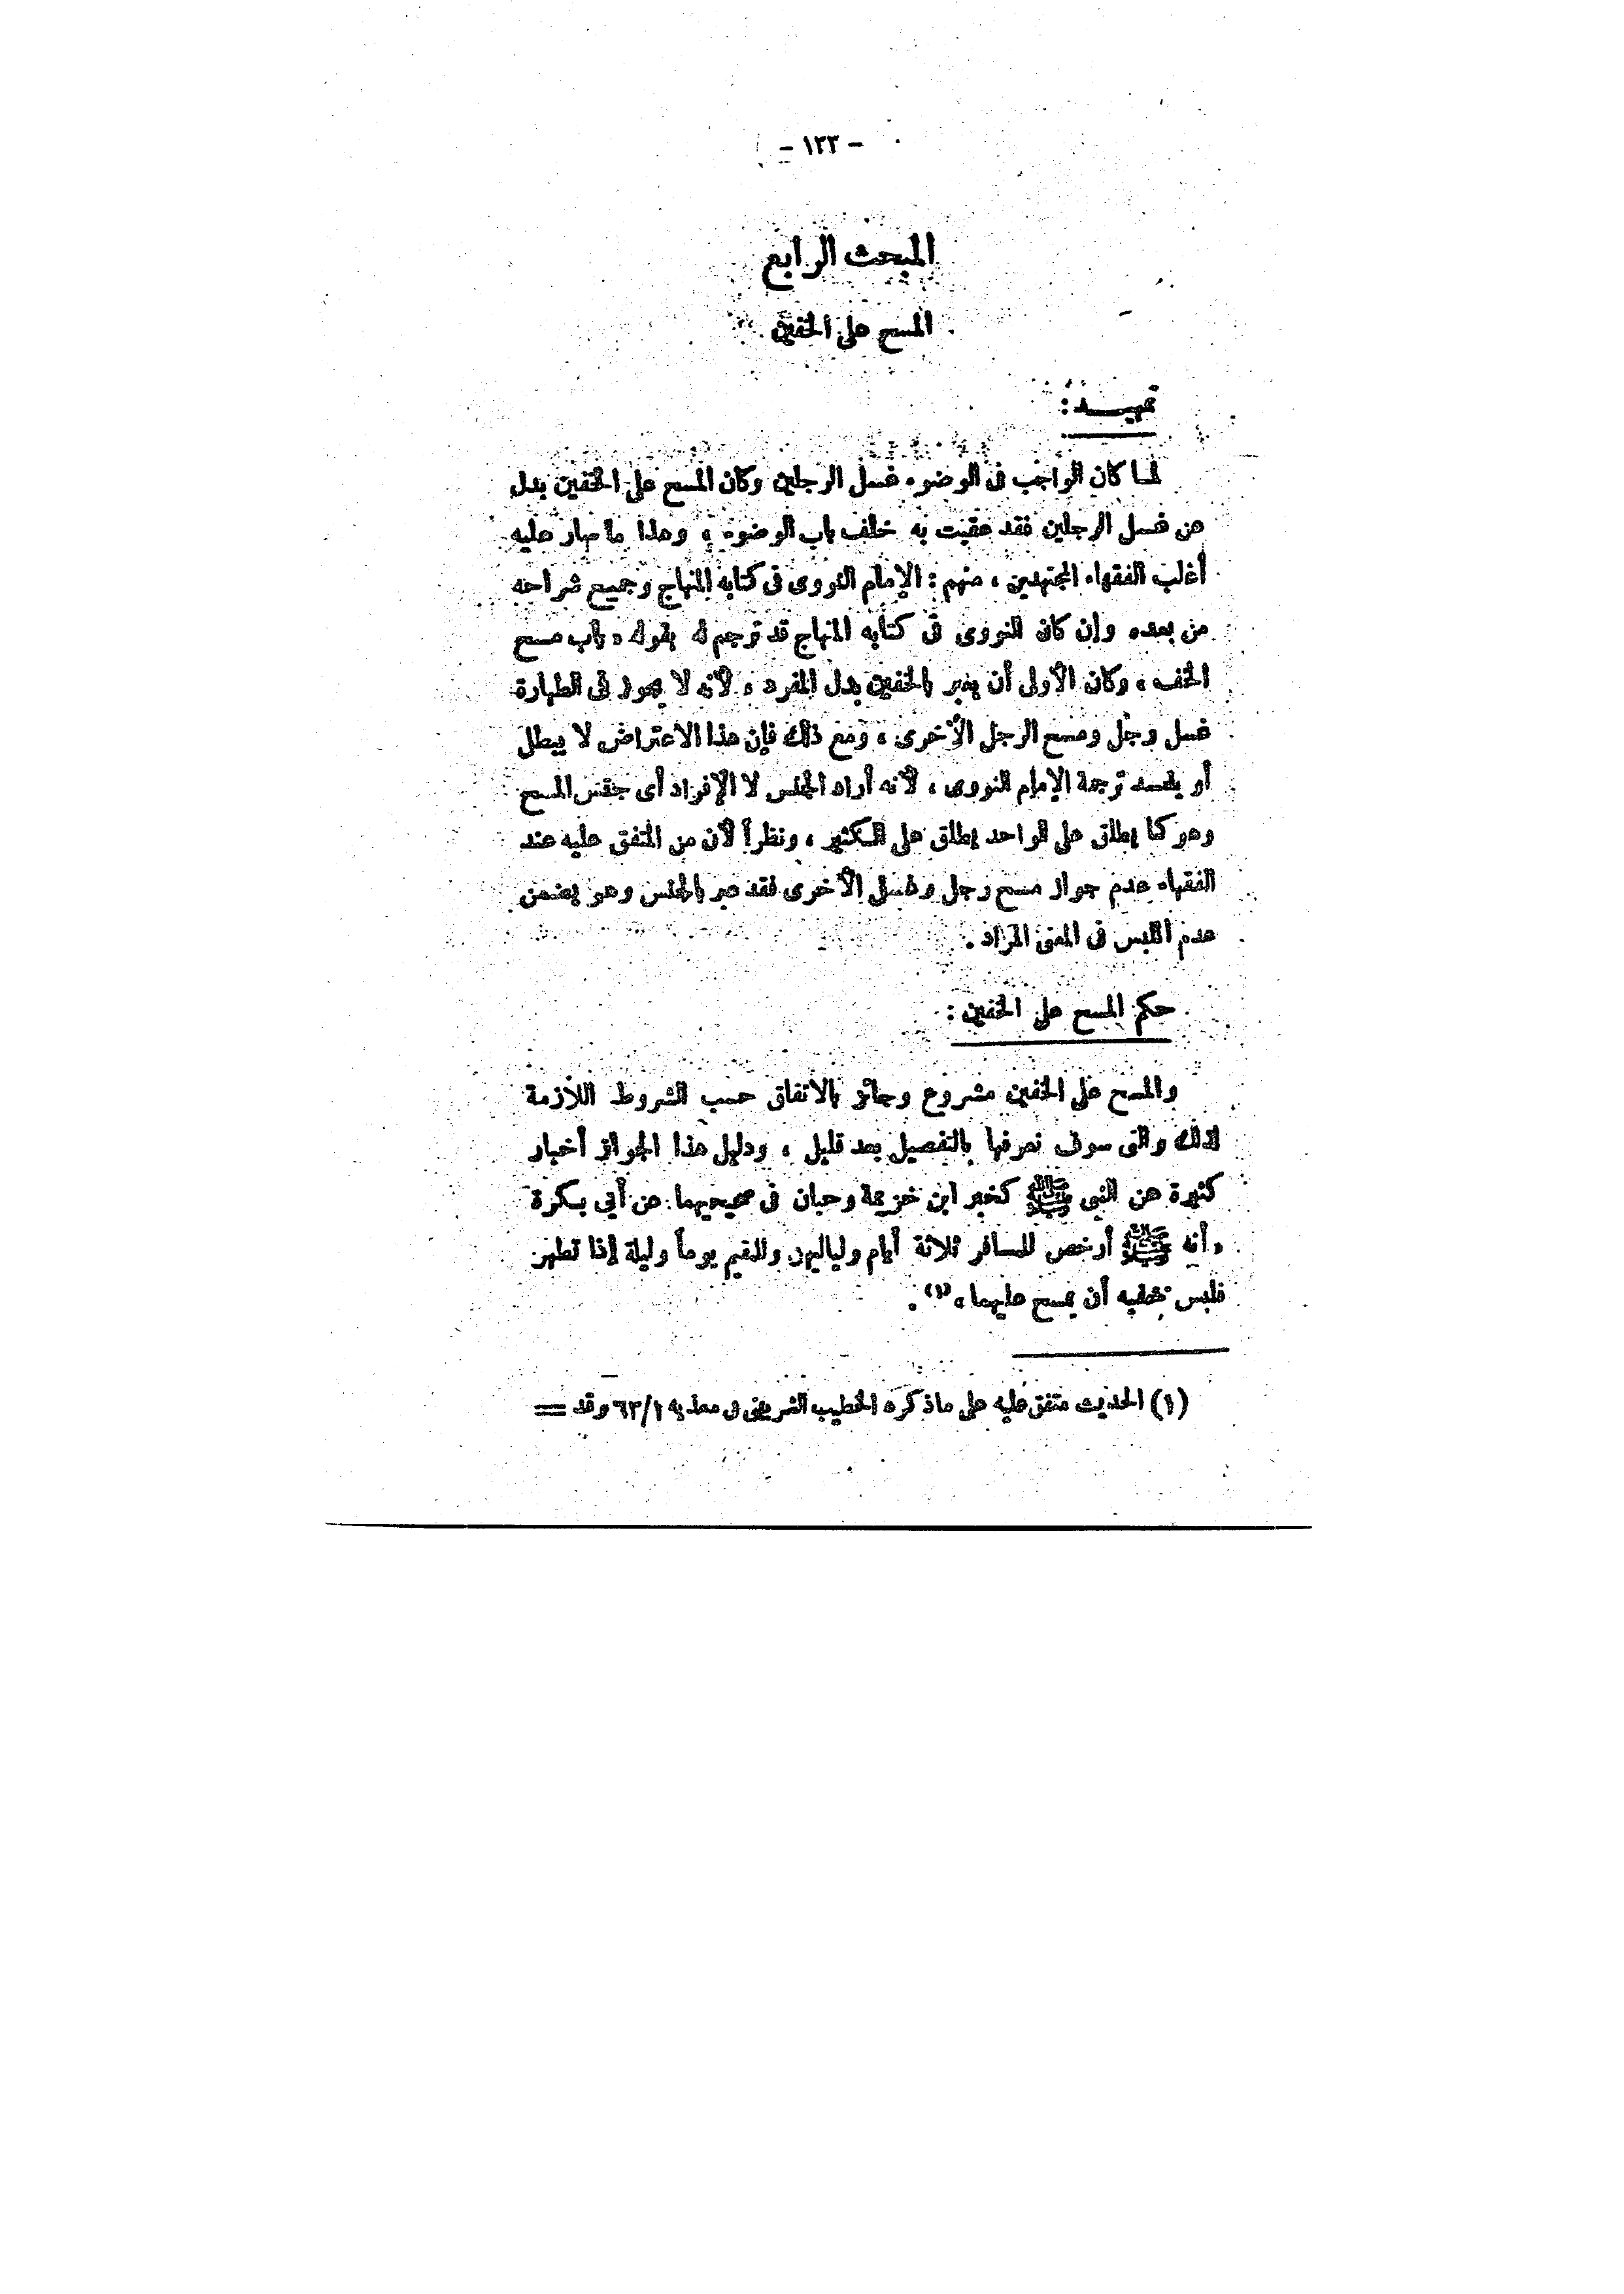 - ١٢٣ -
المبحث الرابع
المسح على الخفين
تمهيــد :
لمـا كان الواجب فى الوضوء غسل الرجلين وكان المسح على الخفين بدل
عن غسل الرجلين فقد عقبت به خلف باب الوضوء ، وهذا ما سار عليه
أغلب الفقهاء المجتهدين ، منهم : الإمام النووى فى كتابه المنهاج وجميع شراحه
من بعده وإن كان النووى فى كتابه المنهاج قد ترجم له بقوله « باب مسح
الخف » وكان الأولى أن يعبر بالخفين بدل المفرد ، لأنه لا يجوز فى الطهارة
غسل رجل ومسح الرجل الأخرى ، ومع ذلك فإن هذا الاعتراض لا يبطل
أو يفسد ترجمة الإمام النووى ، لأنه أراد الجنس لا الإفراد أى جنس المسح
وهو كما يطلق على الواحد يطلق على الكثير ، ونظراً لأن من المتفق عليه عند
الفقهاء عدم جواز مسح رجل وغسل الأخرى فقد عبر بالجنس وهو يضمن
عدم اللبس فى المعنى المراد .
حكم المسح على الخفين :
والمسح على الخفين مشروع وجائز بالاتفاق حسب الشروط اللازمة
لذلك والتى سوف نعرفها بالتفصيل بعد قليل ، ودليل هذا الجواز أخبار
كثيرة عن النبى ﷺ كخبر ابن خزيمة وحبان فى صحيحيهما عن أبي بكرة
« أنه ﷺ أرخص للمسافر ثلاثة أيام ولياليهن وللمقيم يوماً وليلة إذا تطهر
فلبس خفيه أن يمسح عليهما » (١) .
(١) الحديث متفق عليه على ماذكره الخطيب الشربينى فى مغنيه ٦٣/١ وقد =